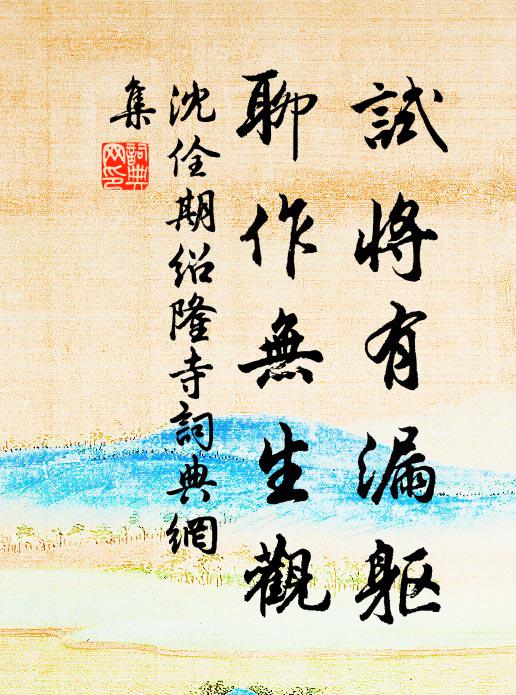 試將有漏軀
聊作無生觀
沈佺期紹隆寺詞典網
集
詞典網印